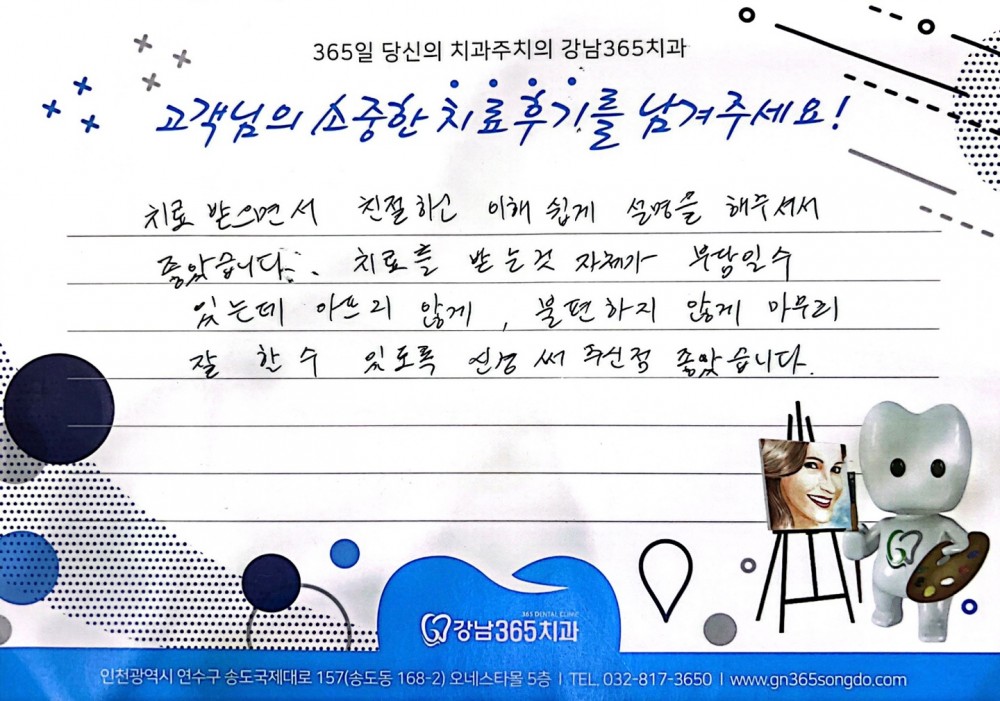 365일 당신의 치과주치의 강남365치과
고객님의 소중한 치료후기를 남겨주세요!
치료 받으면서 친절하고 이해 쉽게 설명을 해주셔서
좋았습니다. 치료를 받는것 자체가 부담일수
있는데 아프지 않게, 불편하지 않게 마무리
잘 할 수 있도록 신경 써 주신점 좋았습니다.
365 DENTAL CLINIC
강남365치과
인천광역시 연수구 송도국제대로 157(송도동 168-2) 오네스타몰 5층 I TEL. 032-817-3650 I www.gn365songdo.com